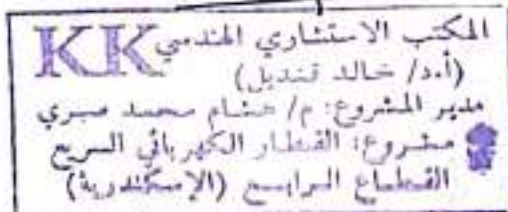 المكتب الاستشاري الهندسي KK
(أ.د/ خالد قنديل)
مدير المشروع: م/ هشام محمد صبري
مشروع: القطار الكهربائي السريع
القطاع الرابع (الإسكندرية)